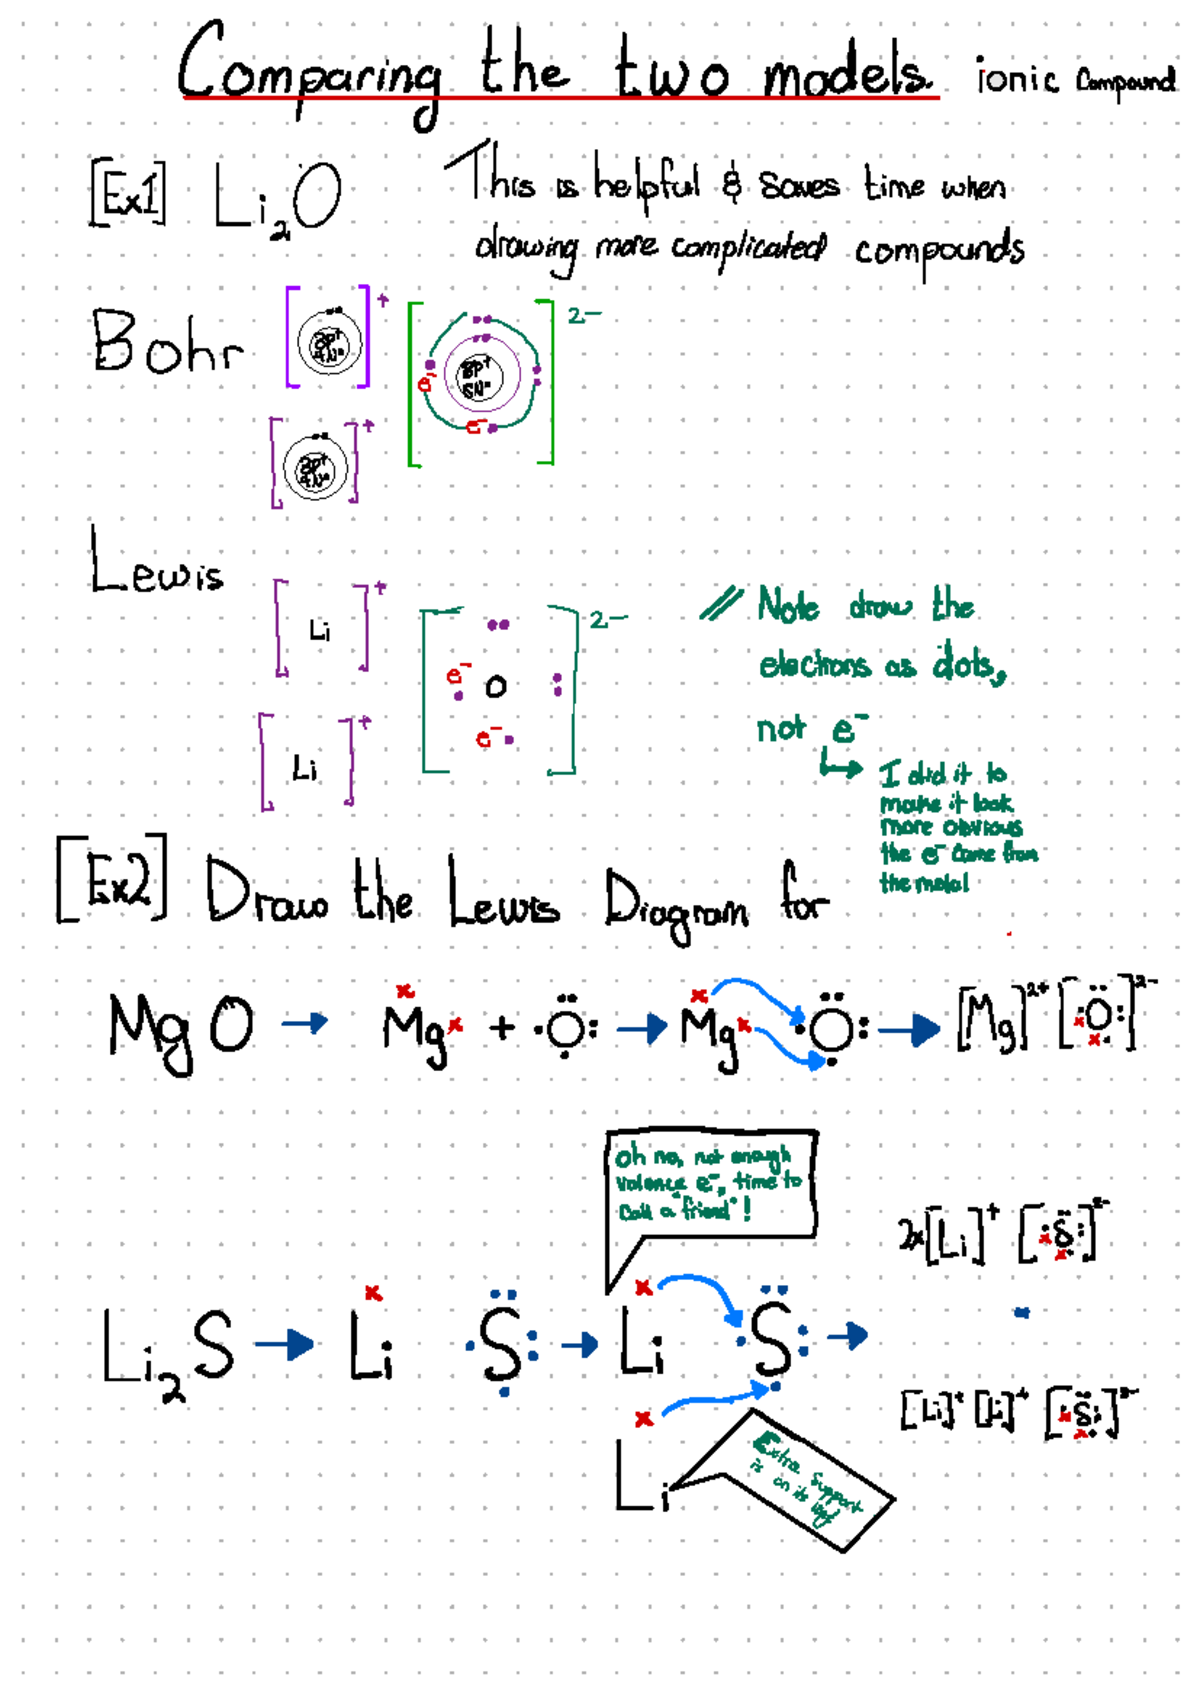 Comparing the two models. ionic Compound
[Ex1] Li₂O
This is helpful & saves time when
drawing more complicated compounds
Bohr
[3p⁺ 4n⁰]⁺
[8p⁺ e⁻ e⁻]²⁻
[3p⁺ 4n⁰]⁺
Lewis
[Li]⁺
[e⁻ O e⁻]²⁻
[Li]⁺
// Note draw the
electrons as dots,
not e⁻
↳ I did it to
make it look
more obvious
the e⁻ came from
the metal
[Ex2] Draw the Lewis Diagram for
MgO → Mg + O → Mg O → [Mg]²⁺ [O]²⁻
Oh no, not enough
valence e⁻, time to
call a "friend"!
2x[Li]⁺ [S]²⁻
Li₂S → Li S → Li S →
[Li]⁺ [Li]⁺ [S]²⁻
Li
Extra Support
is on its way